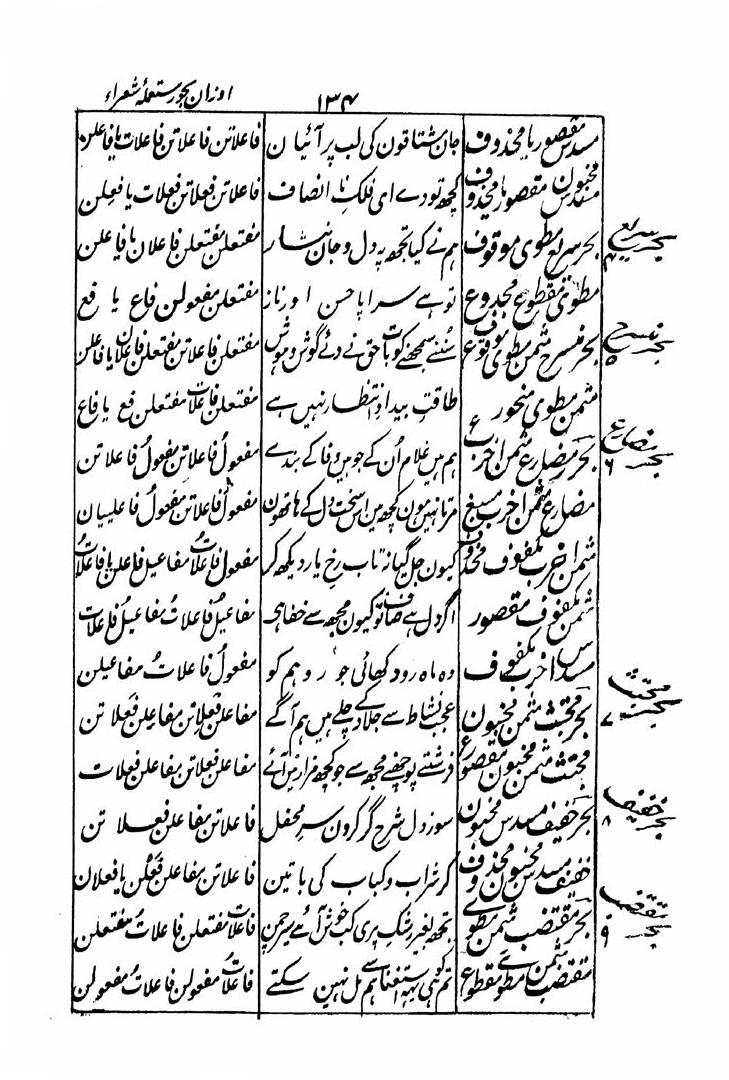 ۱۳۴ اوزان بحور مستعملۂ شعراء
مسدس مقصور یا محذوف جان مشتاقون کی لب پر آئیان فاعلاتن فاعلاتن فاعلات یا فاعلن
مخبون مسدس مقصور یا محذوف کچھ تو دے ای فلک انصاف فاعلاتن فعلاتن فعلات یا فعلن
بحر سریع ۴ بحر سریع مطوی موقوف ہم نے کیا تجھ پہ دل و جان نثار مفتعلن مفتعلن فاعلان یا فاعلن
مطوی مقطوع مجدوع تو ہے سراپا حسن اور ناز مفتعلن مفعولن فاع یا فع
بحر منسرح ۵ بحر منسرح مثمن مطوی موقوف سننے سمجھنے کو بات حق نے دئے گوش و ہوش مفتعلن فاعلاتن مفتعلن فاعلان یا فاعلن
مثمن مطوی منحور طاقت بیداد انتظار نہین ہے مفتعلن فاعلات مفتعلن فع یا فاع
بحر مضارع ۶ بحر مضارع مثمن اخرب ہم ہین غلام اُن کے جو ہین وفا کے بندے مفعولُ فاعلاتن مفعولُ فاعلاتن
مضارع مثمن اخرب مسبغ مرتا نہین ہون کچھ مین اس سخت دل کے ہاتھون مفعولُ فاعلاتن مفعولُ فاعلییان
مثمن اخرب مکفوف محذوف کیون جل گیا نہ تاب رخ یار دیکھ کر مفعول فاعلاتُ مفاعیل فاعلن یا فاعلات
مثمن مکفوف مقصور اگر دل ہے صاف تو کیون مجھ سے خفا ہی مفاعیلُ فاعلاتُ مفاعیلُ فاعلات
مسدس اخرب مکفوف وہ ماہ رو دکھائی جو رو ہم کو مفعولُ فاعلاتُ مفاعیلن
بحر مجتث ۷ بحر مجتث مثمن مخبون عجب نشاط سے جلاد کے چلے ہین ہم آگے مفاعلن فعلاتن مفاعلن فعلاتن
مجتث مثمن مخبون مقصور فرشتے پوچھنے مجھ سے جو کچھ مزار مین آئے مفاعلن فعلاتن مفاعلن فعلات
بحر خفیف ۸ بحر خفیف مسدس مخبون سوز دل شرح گر کرون سر محفل فاعلاتن مفاعلن فعلاتن
خفیف مسدس مخبون محذوف کر شراب و کباب کی باتین فاعلاتن مفاعلن فعلن یا فعلان
بحر مقتضب ۹ بحر مقتضب مثمن مطوی تجھ بغیر رشک پری کب خوش آئے سیر چمن فاعلات مفتعلن فاعلاتُ مفتعلن
مقتضب مثمن مطوی مقطوع تم کو ہی یہہ استغنا ہم سے مل نہین سکتے فاعلاتُ مفعولن فاعلاتُ مفعولن